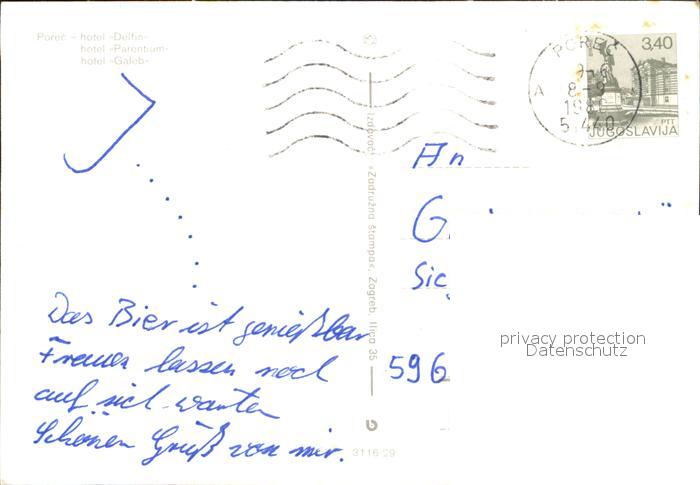 Poreč – hotel »Delfin«
hotel »Parentium«
hotel »Galeb«
POREČ
A
8-9
5 440
3,40
PTT
JUGOSLAVIJA
Izdavač: »Zadružna štampa«, Zagreb, Ilica 35
An
G
Sic
596
privacy protection
Datenschutz
Das Bier ist genießbar
Frauen lassen noch
auf sich warten
Schönen Gruß von mir.
3116-29